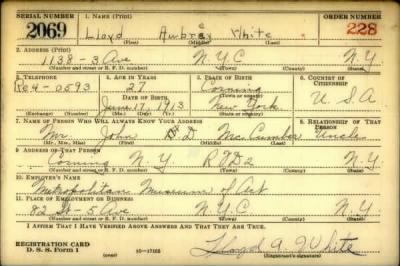 SERIAL NUMBER 1. NAME (Print) ORDER NUMBER
2069 Lloyd Aubrey White 228
(First) (Middle) (Last)
2. ADDRESS (Print)
1138-3 Ave N.Y.C N.Y
(Number and street or R. F. D. number) (Town) (County) (State)
3. TELEPHONE 4. AGE IN YEARS 5. PLACE OF BIRTH 6. COUNTRY OF CITIZENSHIP
Re4-0593 27 Corning
DATE OF BIRTH (Town or county)
June 17, 1913 New York U.S.A
(Exchange) (Number) (Mo.) (Day) (Yr.) (State or country)
7. NAME OF PERSON WHO WILL ALWAYS KNOW YOUR ADDRESS 8. RELATIONSHIP OF THAT PERSON
Mr. John D McCumber Uncle
(Mr., Mrs., Miss) (First) (Middle) (Last)
9. ADDRESS OF THAT PERSON
Corning N.Y. RFD2 N.Y.
(Number and street or R. F. D. number) (Town) (County) (State)
10. EMPLOYER'S NAME
Metropolitan Museum of Art
11. PLACE OF EMPLOYMENT OR BUSINESS
82 St-5 Ave N.Y.C N.Y.
(Number and street or R. F. D. number) (Town) (County) (State)
I AFFIRM THAT I HAVE VERIFIED ABOVE ANSWERS AND THAT THEY ARE TRUE.
REGISTRATION CARD
D. S. S. Form 1 (over) 16-17105 Lloyd A. White
(Registrant's signature)